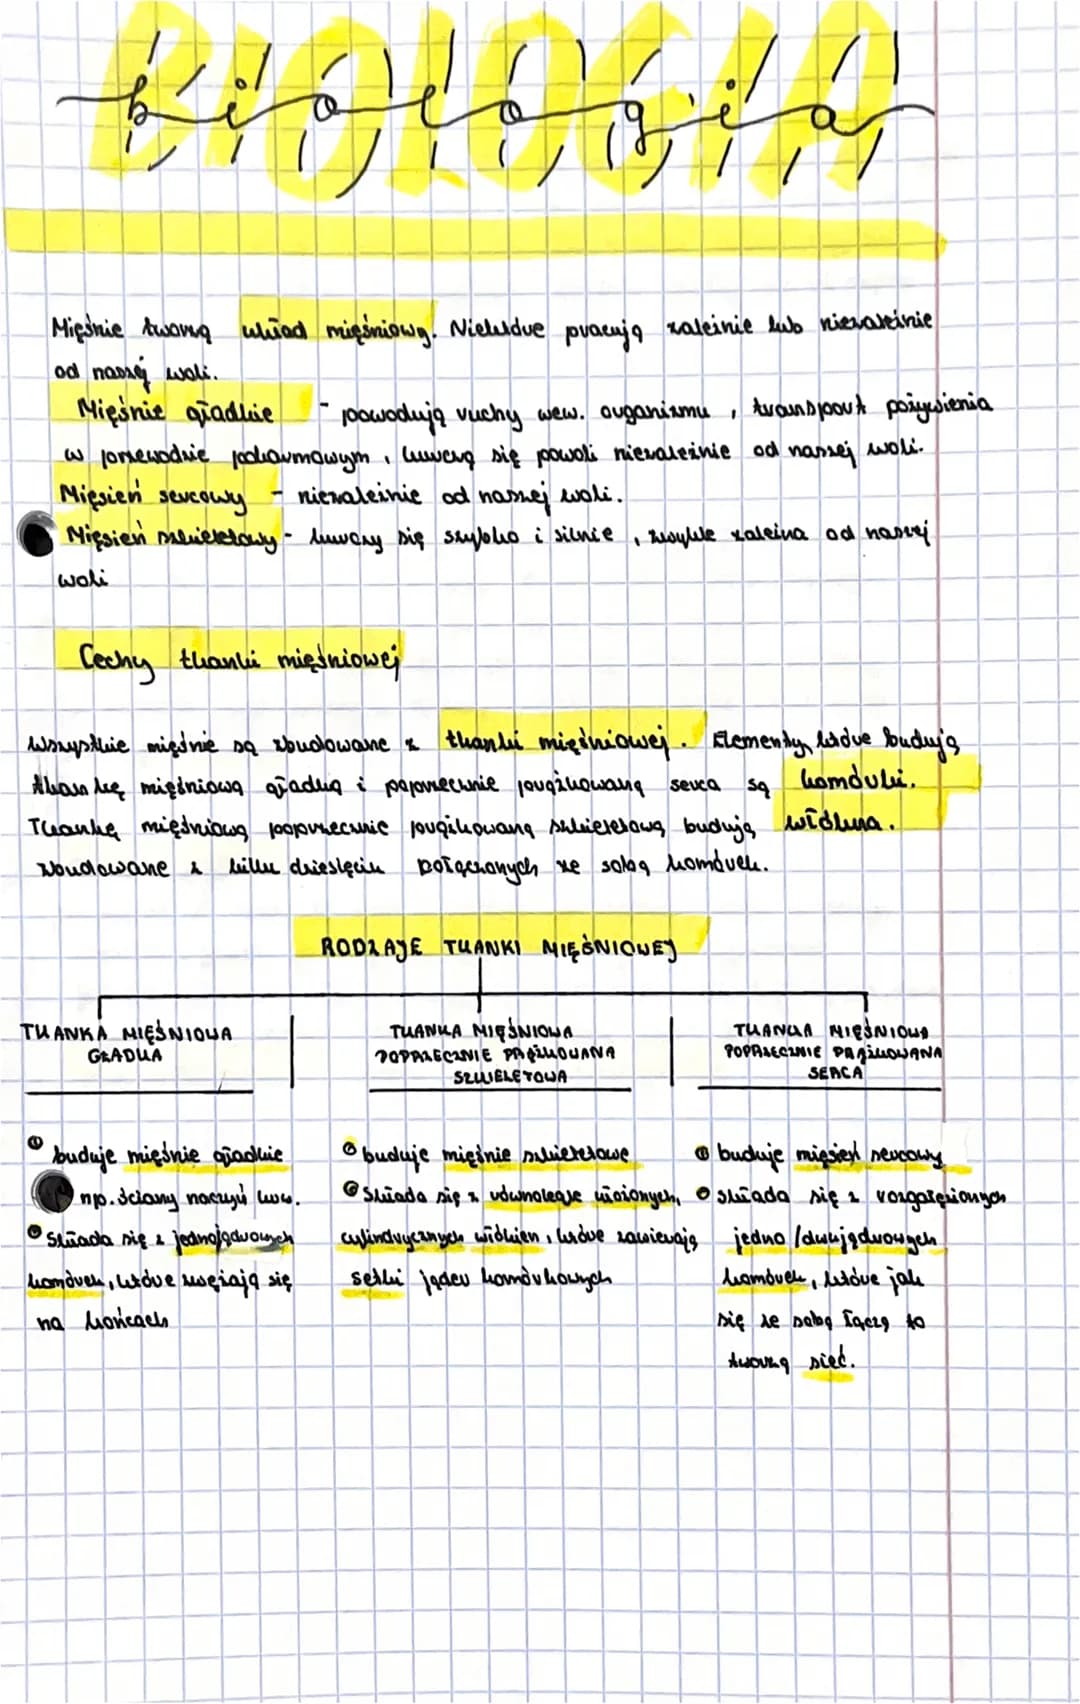 BIOLOGIA
biologia
Mięśnie tworzą układ mięśniowy. Niektóre pracują zależnie lub niezależnie
od naszej woli.
Mięśnie gładkie - powodują ruchy wew. organizmu, transport pożywienia
w przewodzie pokarmowym, kurczą się powoli niezależnie od naszej woli.
Mięsień sercowy - niezależnie od naszej woli.
Mięsień szkieletowy - kurczy się szybko i silnie, zwykle zależna od naszej
woli
Cechy tkanki mięśniowej
Wszystkie mięśnie są zbudowane z tkanki mięśniowej. Elementy, które budują
tkankę mięśniową gładką i poprzecznie prążkowaną serca są komórki.
Tkankę mięśniową poprzecznie prążkowaną szkieletową budują włókna.
zbudowane z kilku dziesięciu połączonych ze sobą komórek.
RODZAJE TKANKI MIĘŚNIOWEJ
TKANKA MIĘŚNIOWA
GŁADKA
TKANKA MIĘŚNIOWA
POPRZECZNIE PRĄŻKOWANA
SZKIELETOWA
TKANKA MIĘŚNIOWA
POPRZECZNIE PRĄŻKOWANA
SERCA
buduje mięśnie gładkie
np. ściany naczyń krw.
składa się z jednojądrowych
komórek, które zwężają się
na końcach
buduje mięśnie szkieletowe
składa się z równolegle ułożonych,
cylindrycznych włókien, które zawierają
setki jąder komórkowych
buduje mięsień sercowy
składa się z rozgałęzionych
jedno/dwujądrowych
komórek, które jak
się ze sobą łączą to
tworzą sieć.